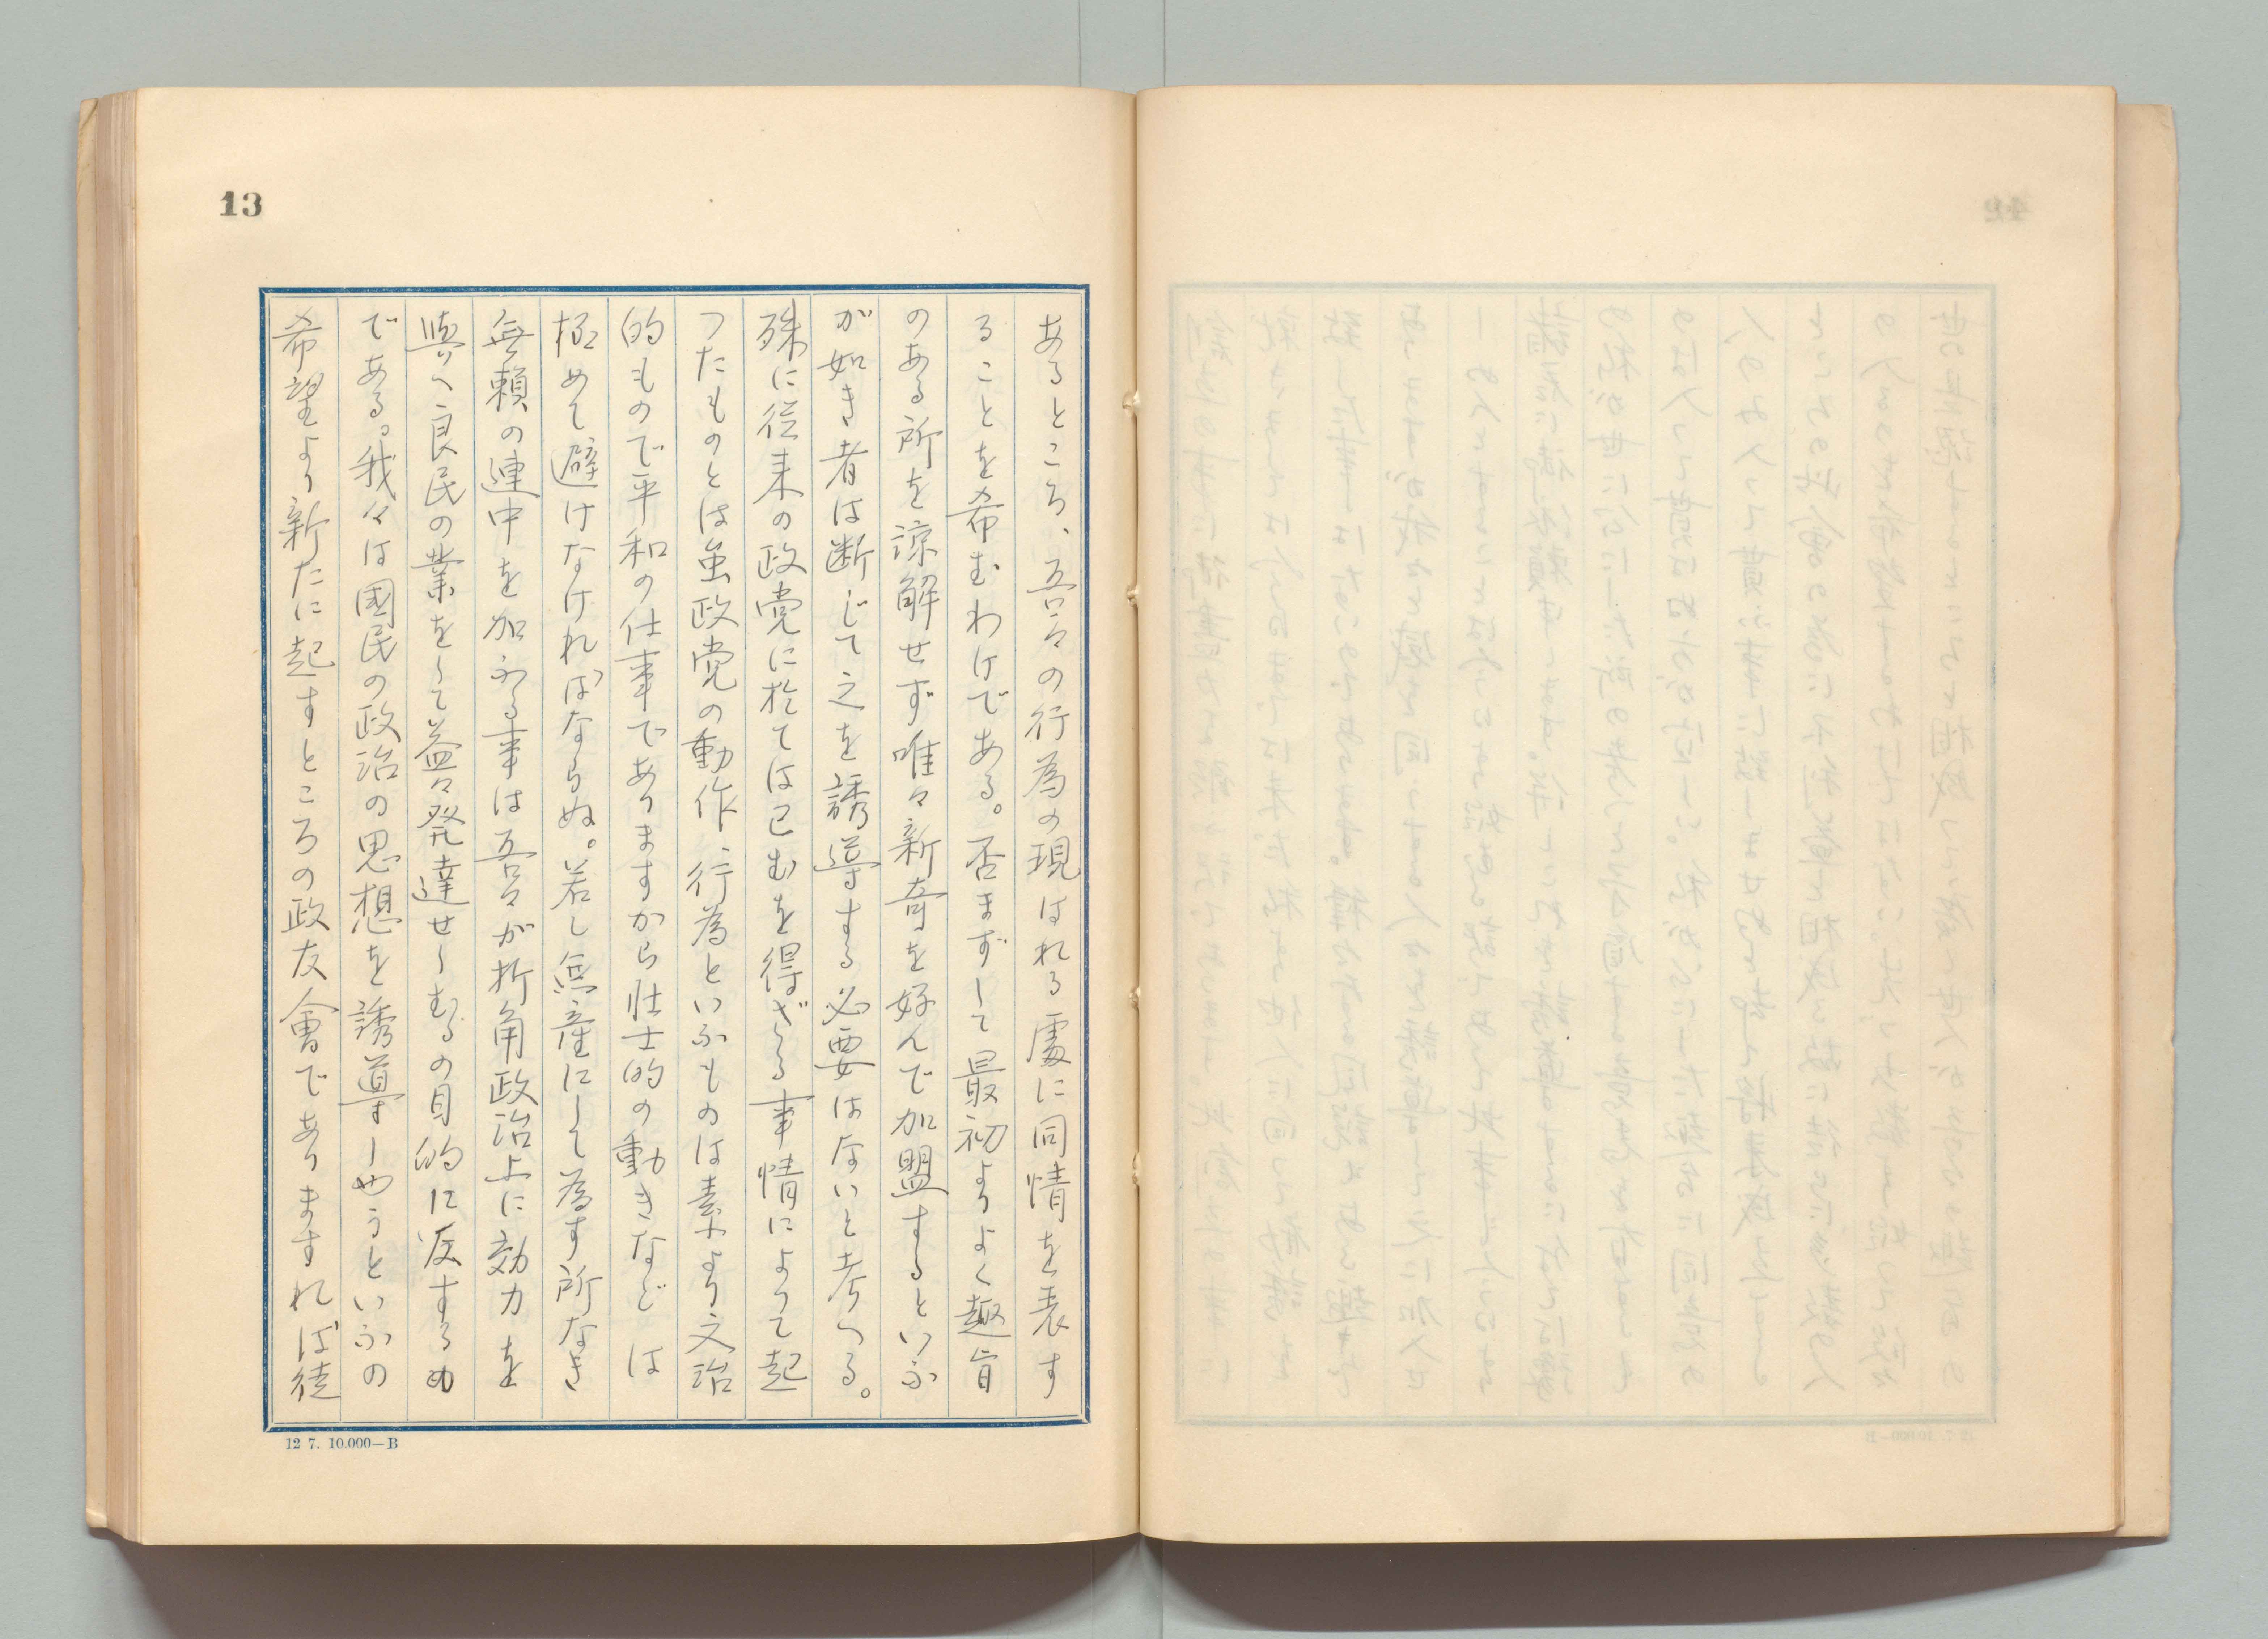 13
あるところ、吾々の行為の現はれる處に同情を表す
ることを希むわけである。否まずして最初よりよく趣旨
のある所を諒解せず唯々新奇を好んで加盟するといふ
が如き者は断じて之を誘導する必要はないと考へる。
殊に従来の政党に於ては已むを得ざる事情によつて起
つたものとは虽政党の動作、行為といふものは素より文治
的もので平和の仕事でありますから壮士的の動きなどは
極めて避けなければならぬ。若し無産にして為す所なき
無頼の連中を加ふる事は吾々が折角政治上に効力を
與へ良民の業をして益々発達せしむるの目的に反するも
である。我々は國民の政治の思想を誘導しやうといふの
希望より新たに起すところの政友會でありますれば徒
12 7. 10.000—B